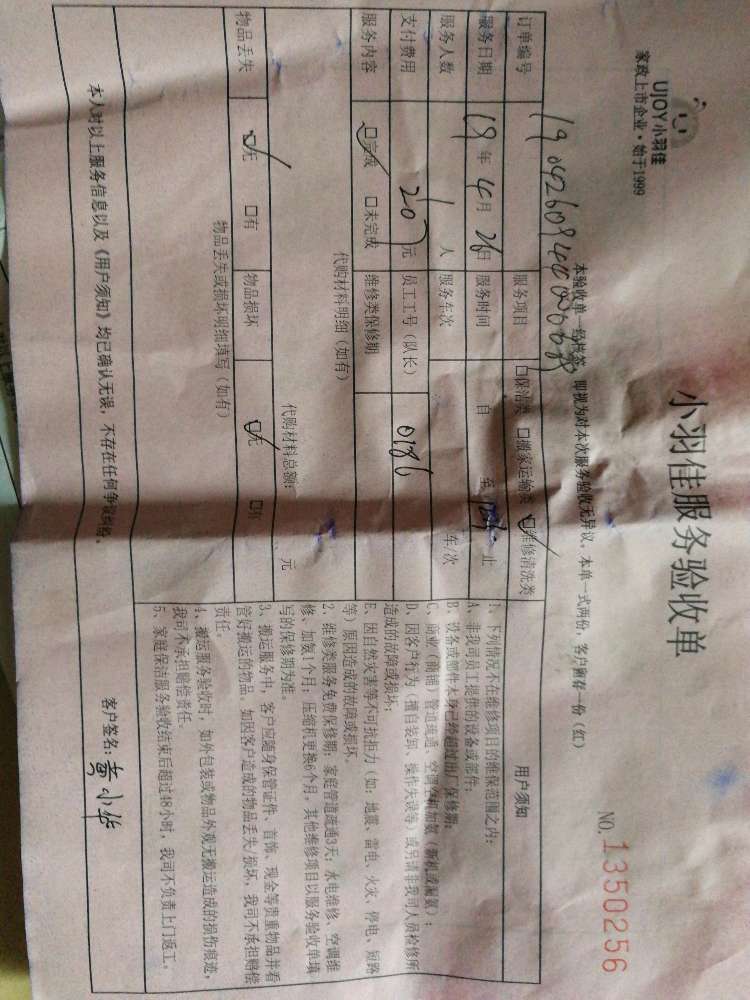 UJOY小羽佳
家政上市企业·始于1999
小羽佳服务验收单
NO.1350256
本验收单一经签, 即视为对本次服务验收无异议。本单一式两份, 客户留存一份(红)
订单编号
服务项目 □保洁类 □搬家运输类 □维修清洗类
服务日期 19年4月26日 服务时间 自 至 止
服务人数 1人 服务车次 车/次
支付费用 207元 员工工号(队长) 0186
服务内容 □完成 □未完成 维修类保修期
代购材料明细(如有)
代购材料总额: 元
物品丢失 □无 □有 物品损坏 □无 □有
物品丢失或损坏明细填写(如有)
用户须知
1、下列情况不在维修项目的维保范围之内:
A、非我司员工提供的设备或部件;
B、设备或部件本身已经超过出厂保修期;
C、商业(商铺)管道疏通、空调空机加氨(新机或漏氨);
D、因客户行为(擅自装卸、操作失误等)或另请非我司人员检修所
造成的故障或损坏;
E、因自然灾害等不可抗拒力(如: 地震、雷电、火灾、停电、短路
等)原因造成的故障或损坏。
2、维修类服务免费保修期: 家庭管道疏通3天; 水电维修、空调维
修、加氨1个月; 压缩机更换6个月, 其他维修项目以服务验收单填
写的保修期为准。
3、搬运服务中, 客户应随身保管证件、首饰、现金等贵重物品并看
管好搬运的物品。如因客户造成的物品丢失/损坏, 我司不承担赔偿
责任。
4、搬运服务验收时, 如外包装或物品外观无搬运造成的损伤痕迹,
我司不承担赔偿责任。
5、家庭保洁服务验收结束后超过48小时, 我司不负责上门返工。
本人对以上服务信息以及《用户须知》均已确认无误, 不存在任何争议纠纷。
客户签名: 黄小华